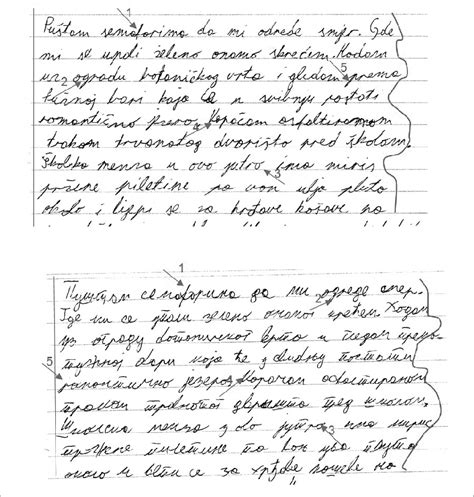 1
Puštam semaforima da mi odrede smjer. Gde
mi se upali zeleno onamo skrećem. Hodam
uz ogradu botaničkog vrta i gledam prema
2
5
tužnoj bari koja će u svibnju postati
romantično jezero. Koračam asfaltiranom
trakom travnatog dvorišta pred školom.
Školska menza u ovo jutro ima miris
3
pržene piletine pa von ulja pluta
okolo i lijepi se za hrđave košave na
1
Пуштам семафорима да ми одреде смер.
Где ми се упали зелено онамо скрећем. Ходам
уз ограду ботаничког врта и гледам према
5
тужној бари која ће у свибњу постати
романтично језеро. Корачам асфалтираном
траком травнатог дворишта пред школом.
Школска менза у ово јутро има мирис
3
пржене пилетине па вон уља плута
около и лепи се за хрђаве кошеве на